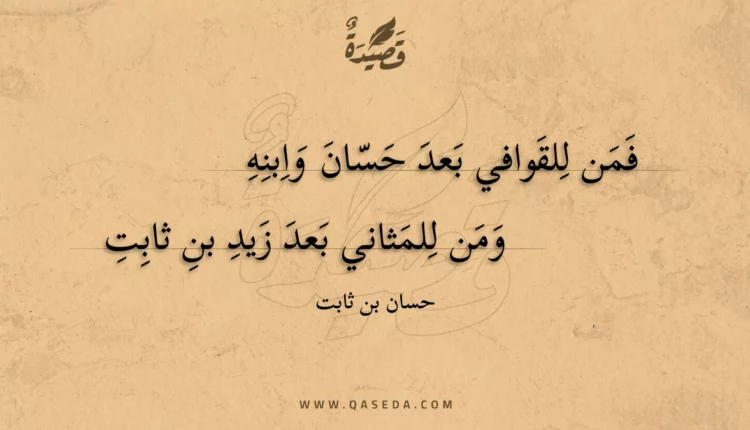 قَصِيْدَةٌ
فَمَن لِلقَوافي بَعدَ حَسّانَ وَاِبنِهِ
وَمَن لِلمَثاني بَعدَ زَيدِ بنِ ثابِتِ
حسان بن ثابت
WWW.QASEDA.COM